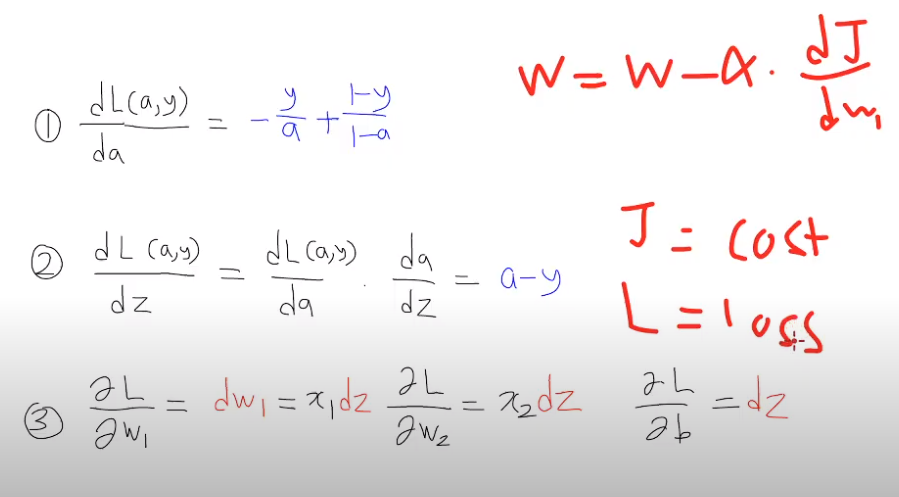 W = W - α · dJ/dw₁
① dL(a,y)/da = - y/a + 1-y/1-a
J = cost
② dL(a,y)/dz = dL(a,y)/da · da/dz = a-y
L = loss
③ ∂L/∂w₁ = dw₁ = x₁dz ∂L/∂w₂ = x₂dz ∂L/∂b = dz